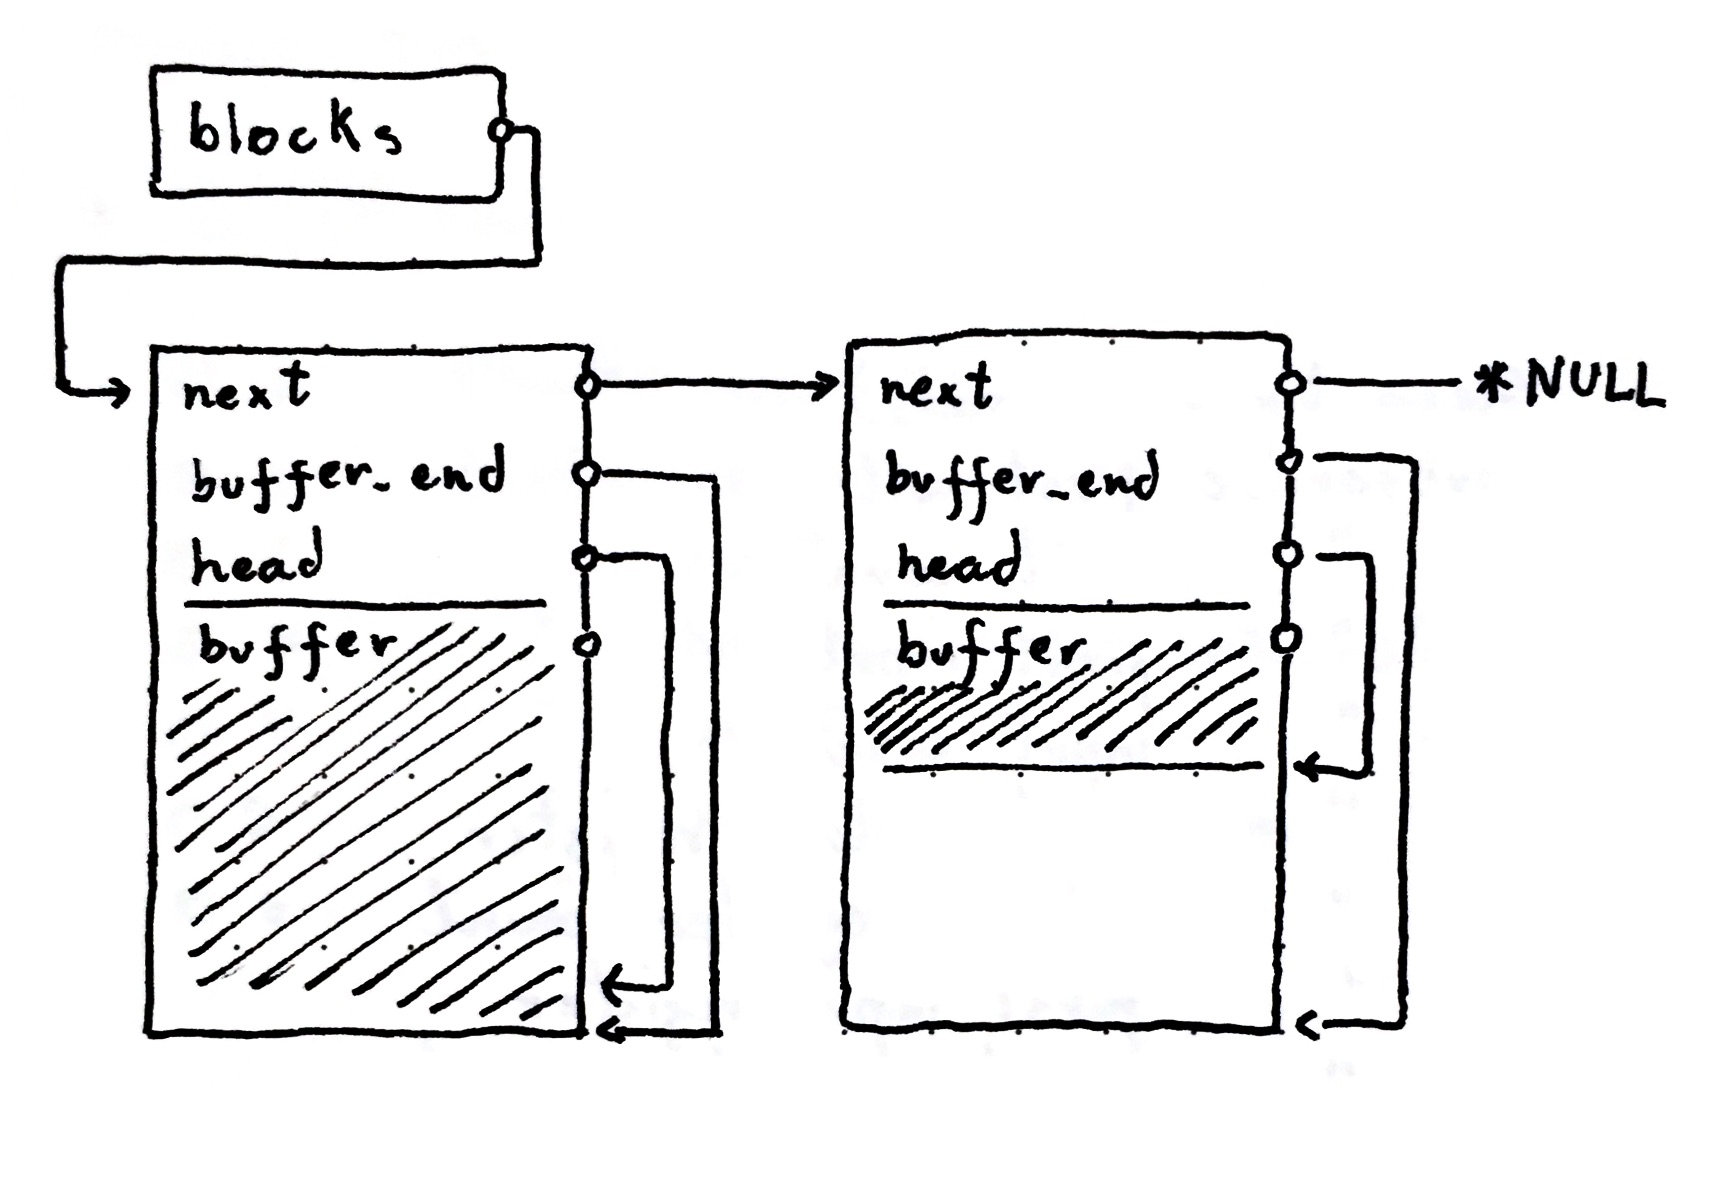 blocks
next
buffer_end
head
buffer
next
buffer_end
head
buffer
* NULL